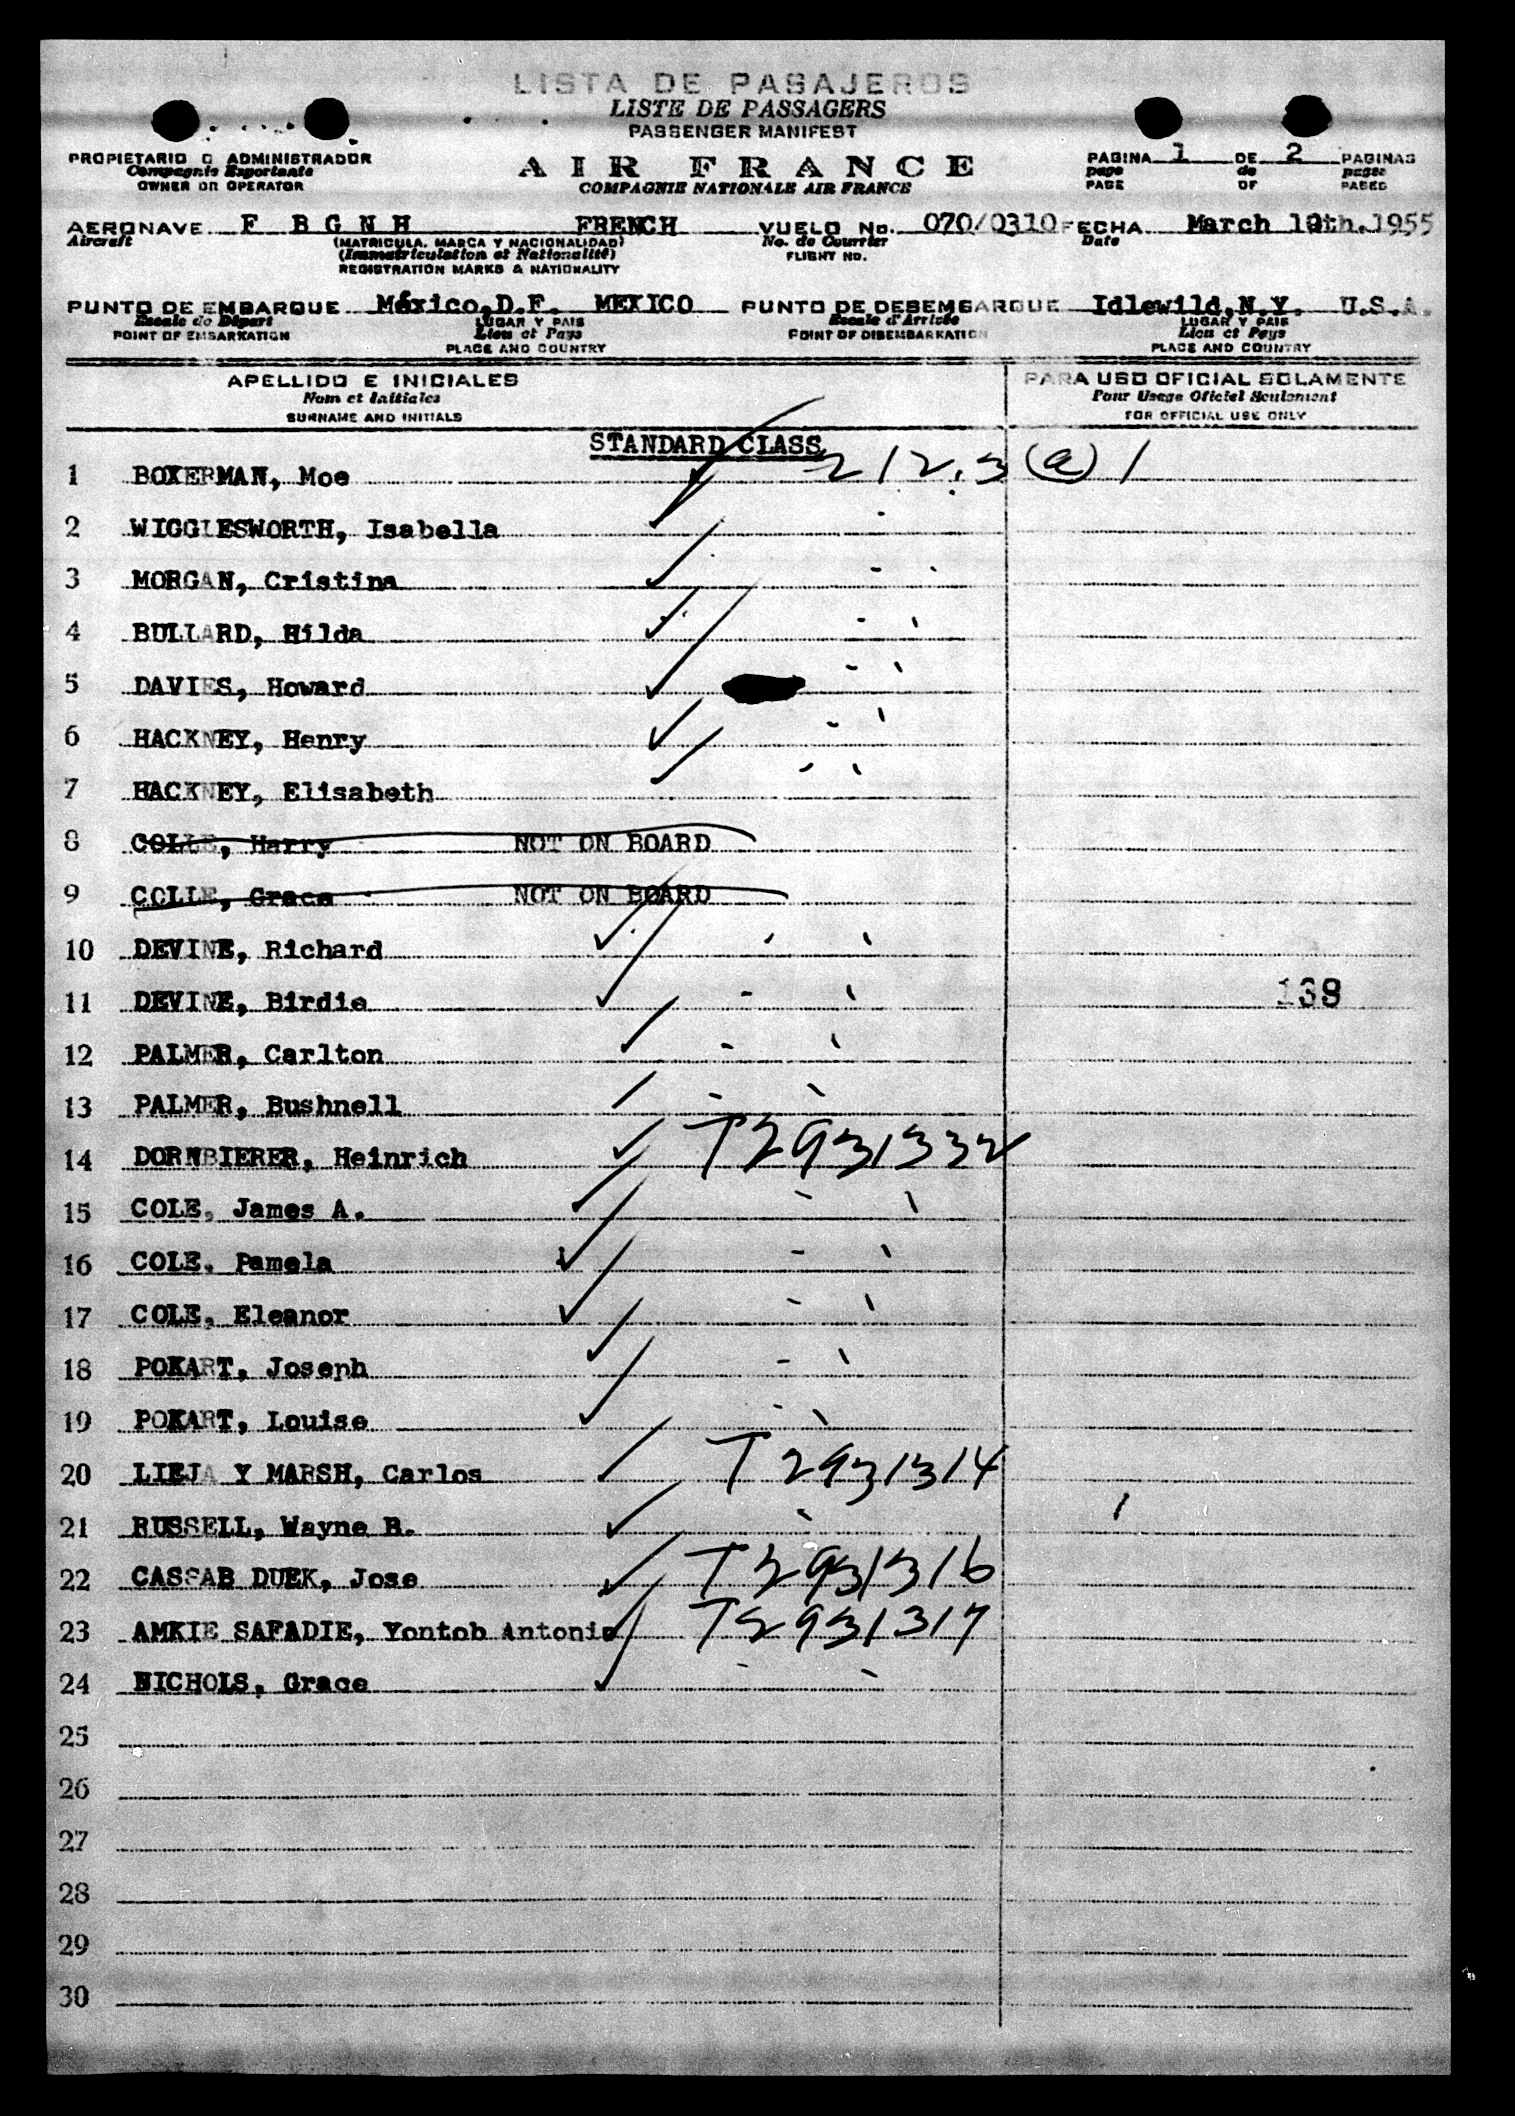 LISTA DE PASAJEROS
LISTE DE PASSAGERS
PASSENGER MANIFEST
PROPIETARIO O ADMINISTRADOR
Compagnie Exportante
OWNER OR OPERATOR
AIR FRANCE
COMPAGNIE NATIONALE AIR FRANCE
PAGINA 1 DE 2 PAGINAS
page de pages
PAGE OF PAGES
AERONAVE F B G N H FRENCH VUELO No. 070/0310 FECHA March 1 th.1955
Aircraft (MATRICULA, MARCA Y NACIONALIDAD) No. de Courrier Date
(Immatriculation et Nationalité) FLIGHT NO.
REGISTRATION MARKS & NATIONALITY
PUNTO DE EMBARQUE México,D.F. MEXICO PUNTO DE DESEMBARQUE Idlewild,N.Y. U.S.A.
Escale de Départ LUGAR Y PAIS Escale d'Arrivée LUGAR Y PAIS
POINT OF EMBARKATION Lieu et Pays POINT OF DISEMBARKATION Lieu et Pays
PLACE AND COUNTRY PLACE AND COUNTRY
APELLIDO E INICIALES PARA USO OFICIAL SOLAMENTE
Nom et Initiales Pour Usage Officiel Seulement
SURNAME AND INITIALS FOR OFFICIAL USE ONLY
STANDARD CLASS
1 BOXERMAN, Moe 212.3(a)1
2 WIGGLESWORTH, Isabella
3 MORGAN, Cristina
4 BULLARD, Hilda
5 DAVIES, Howard
6 HACKNEY, Henry
7 HACKNEY, Elisabeth
8 COLLE, Harry NOT ON BOARD
9 COLLE, Grace NOT ON BOARD
10 DEVINE, Richard
11 DEVINE, Birdie 138
12 PALMER, Carlton
13 PALMER, Bushnell
14 DORNBIERER, Heinrich T2931332
15 COLE, James A.
16 COLE, Pamela
17 COLE, Eleanor
18 POKART, Joseph
19 POKART, Louise
20 LIEJA Y MARSH, Carlos T2931314
21 RUSSELL, Wayne B.
22 CASSAB DUEK, Jose T2931316
23 AMKIE SAFADIE, Yontob Antonio T2931317
24 NICHOLS, Grace
25
26
27
28
29
30